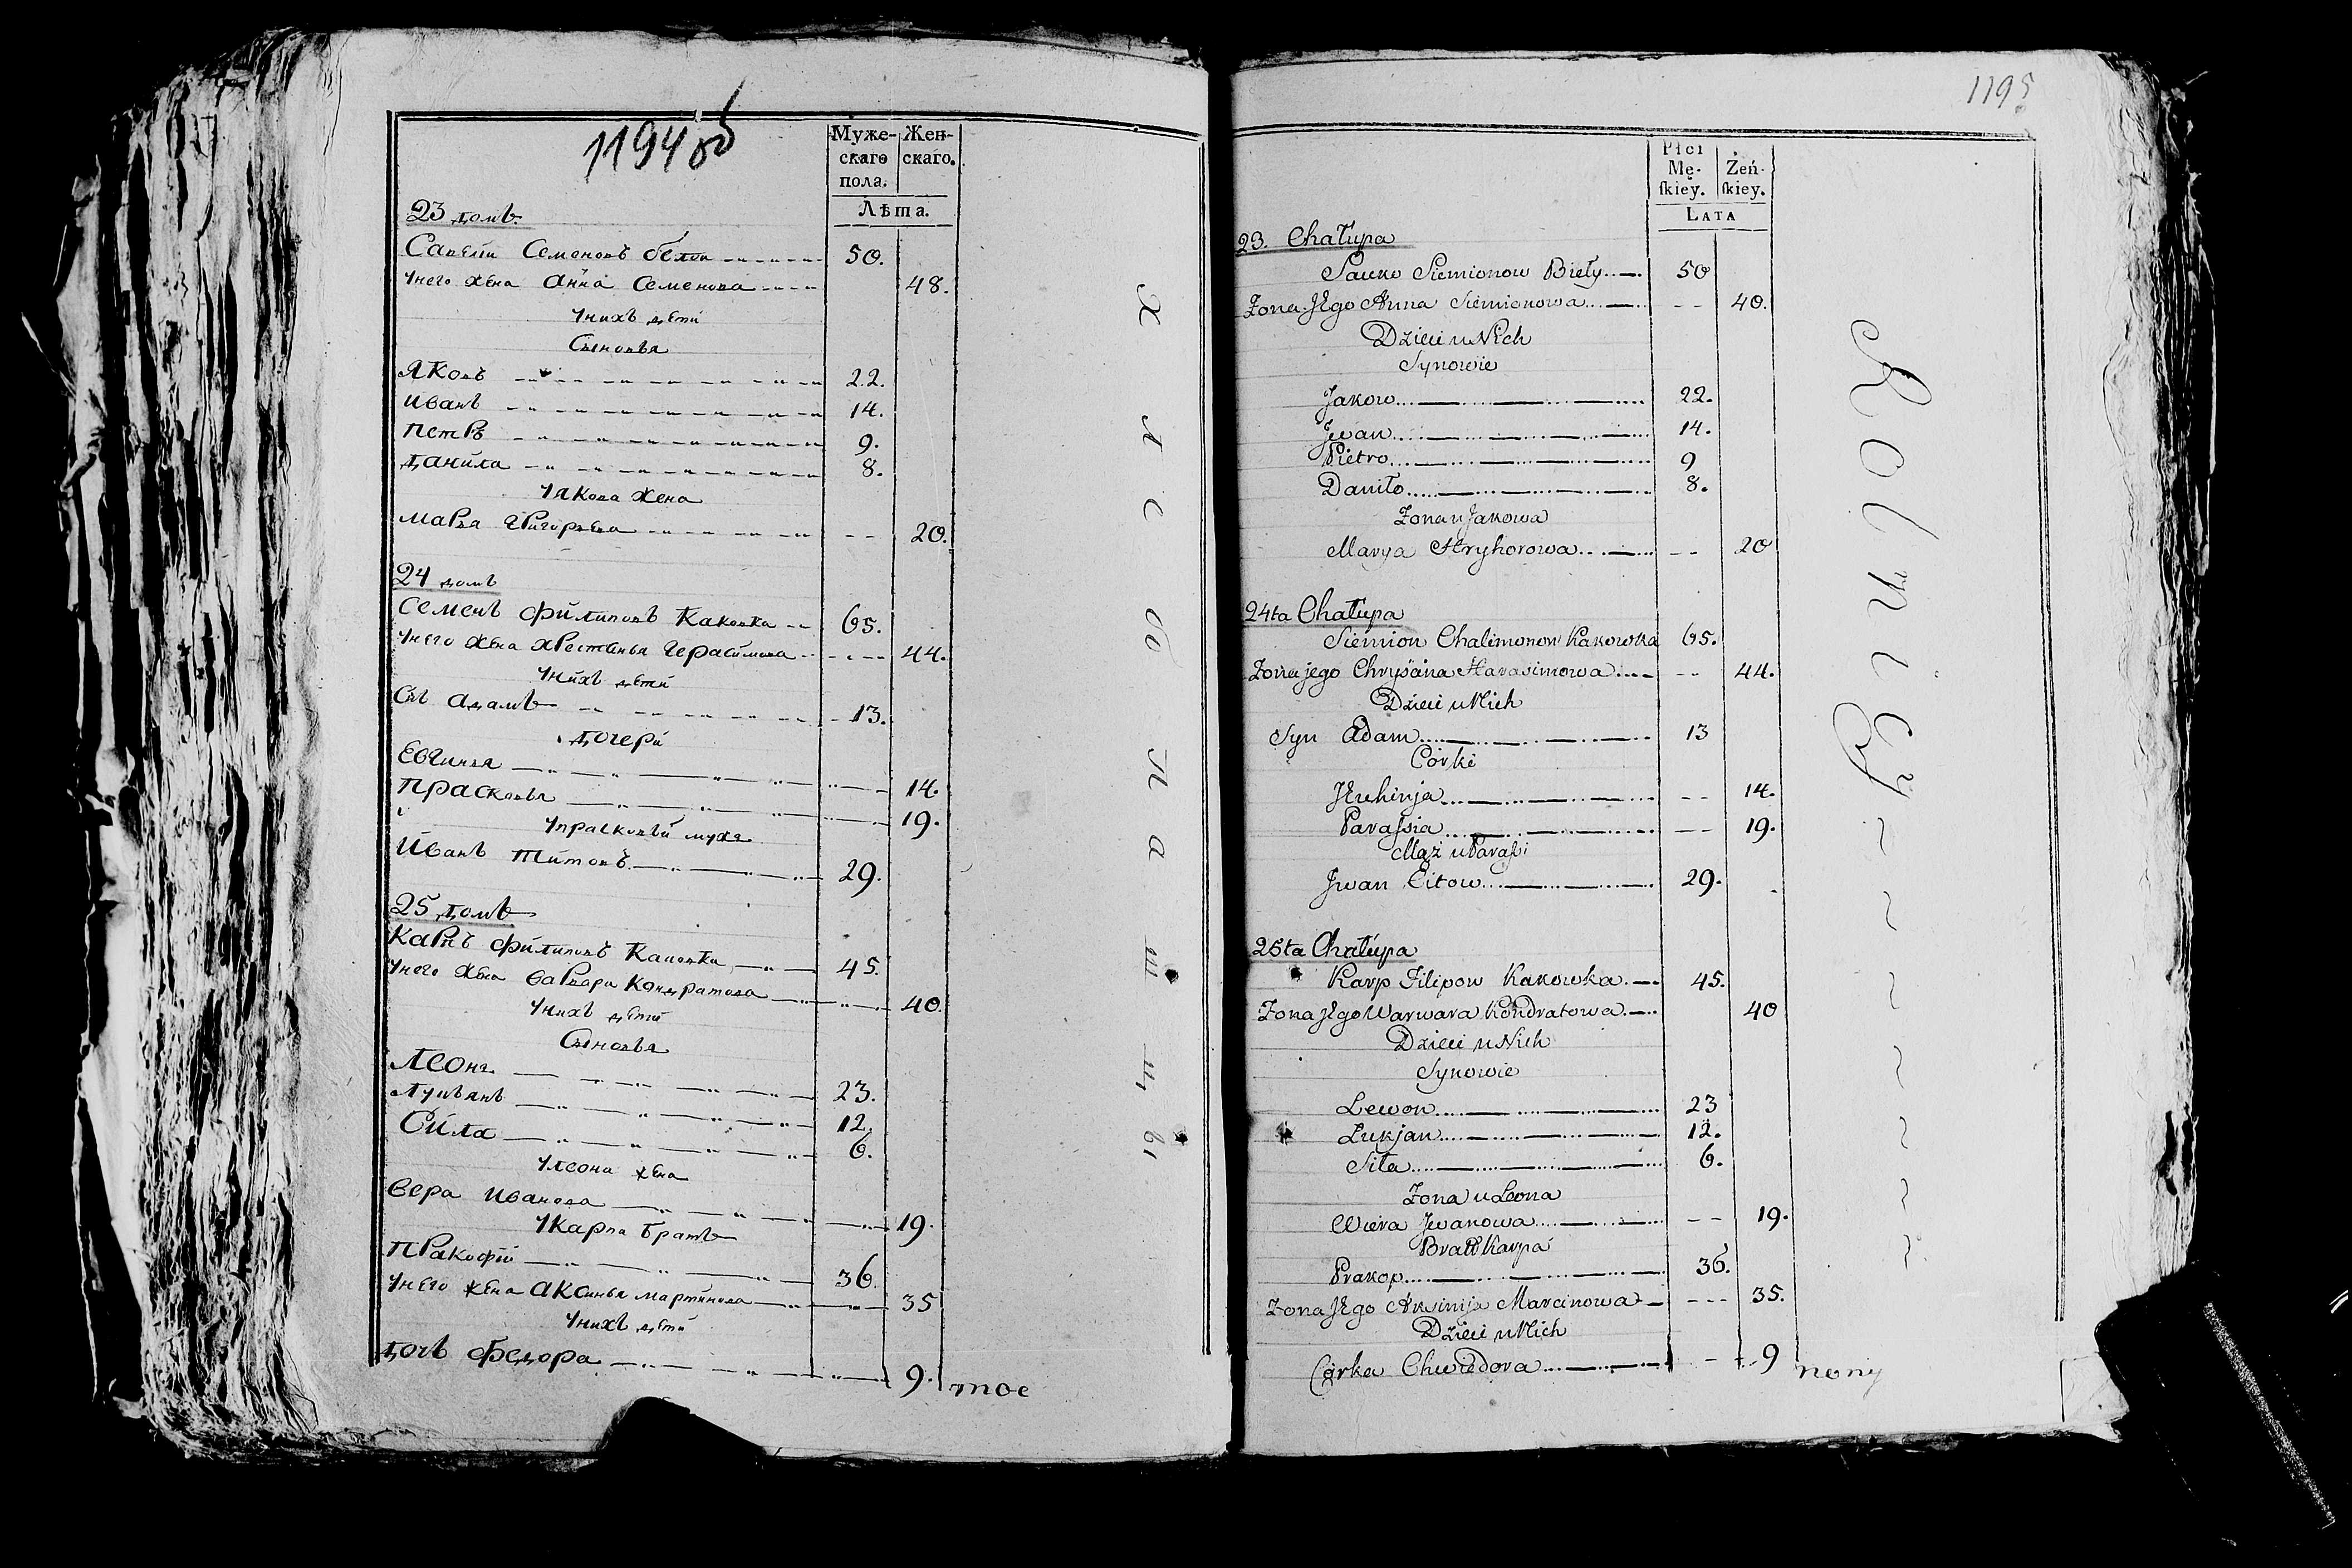 1194 об
Муже- Жен-
скаго скаго.
пола.
Лѣта.
23 домъ
Савели Семеновъ белои 50.
Унего жена Анна Семенова 48.
Унихъ дети
Сыновья
Яковъ 22.
Иванъ 14.
Петръ 9.
Данила 8.
Уякова жена
Марья Григорьева -- 20.
24 домъ
Семенъ Филиповъ Каковка 65.
Унего жена Герасимова 44.
Унихъ дети
Снъ Адамъ 13.
Дочери
Евгинья 14.
Прасковья 19.
Упрасковьи мужъ
Иванъ Титовъ 29.
25 домъ
Карпъ Филиповъ Каковка 45.
Унего жена Варвара Кондратова 40.
Унихъ дети
Сыновья
Леонъ 23.
Лукьянъ 12.
Сила 6.
Улеона жена
Вера Иванова 19.
Укарпа братъ
Пракофiй 36.
Унего жена Аксинья Мартинова 35
Унихъ дети
Дочь Федора 9.
тое
хлебопашцы
1195
Płci
Mę- Żeń-
ſkiey. ſkiey.
LATA
23. Chałupa
Sawko Siemionow Biały 50
Zona Jego Anna Siemionowa -- 40.
Dzieci u Nich
Synowie
Jakow 22.
Jwan 14.
Pietro 9
Daniło 8.
Zona u Jakowa
Marya Hryhorowa -- 20
24ta Chałupa
Siemion Chalimonow Kakowka 65.
Zona jego Harasimowa -- 44.
Dzieci u Nich
Syn Adam 13
Córki
Jeuhinja -- 14.
Paraſsia -- 19.
Mąż u Paraſsi
Jwan Citow 29.
25ta Chałupa
Karp Filipow Kakowka 45.
Zona Jego Warwara Kondratowa 40
Dzieci u Nich
Synowie
Lewon 23
Łukjan 12.
Siła 6.
Zona u Leona
Wiera Jwanowa -- 19.
Brat Karpa
Prakop 36.
Zona Jego Aksinija Marcinowa --- 35.
Dzieci u Nich
Córka Chwiedora 9
nony
Rolnicy